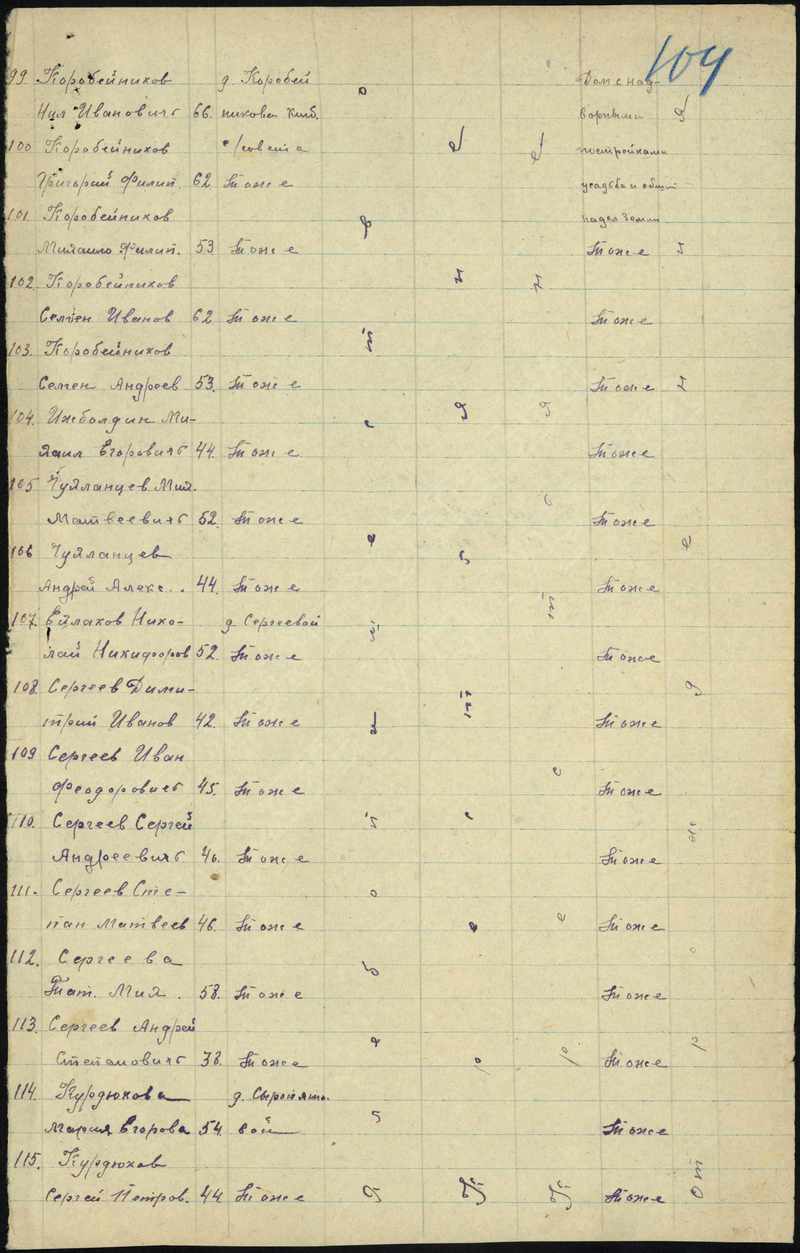 104
99 Коробейников д. Коробей Дом с над-
Нил Иванович 66. никова Киб. ворными
100 Коробейников с/совета постройками
Григорий Филип. 62 Тоже усадьба и общий
101 Коробейников надел земли
Михаило Филип. 53 Тоже Тоже
102 Коробейников
Семен Иванов 62 Тоже Тоже
103. Коробейников
Семен Андреев 53. Тоже Тоже
104. Ижболдин Ми-
хаил Егорович 44. Тоже Тоже
105 Чухланцев Мих.
Матвеевич 52. Тоже Тоже
106 Чухланцев
Андрей Алекс. 44. Тоже Тоже
107. Нико- д. Сергеевой
лай Никифоров 52. Тоже Тоже
108. Сергеев Дими-
трий Иванов 42. Тоже Тоже
109 Сергеев Иван
Феодорович 45. Тоже Тоже
110. Сергеев Сергей
Андреевич 40. Тоже Тоже
111. Сергеев Сте-
пан Матвеев 46. Тоже Тоже
112. Сергеева
Тат. Мих. 58. Тоже Тоже
113. Сергеев Андрей
Степанович 38. Тоже Тоже
114. Курдюкова д.
Мария Егорова 54. вой Тоже
115. Курдюков
Сергей Петров. 44 Тоже Тоже